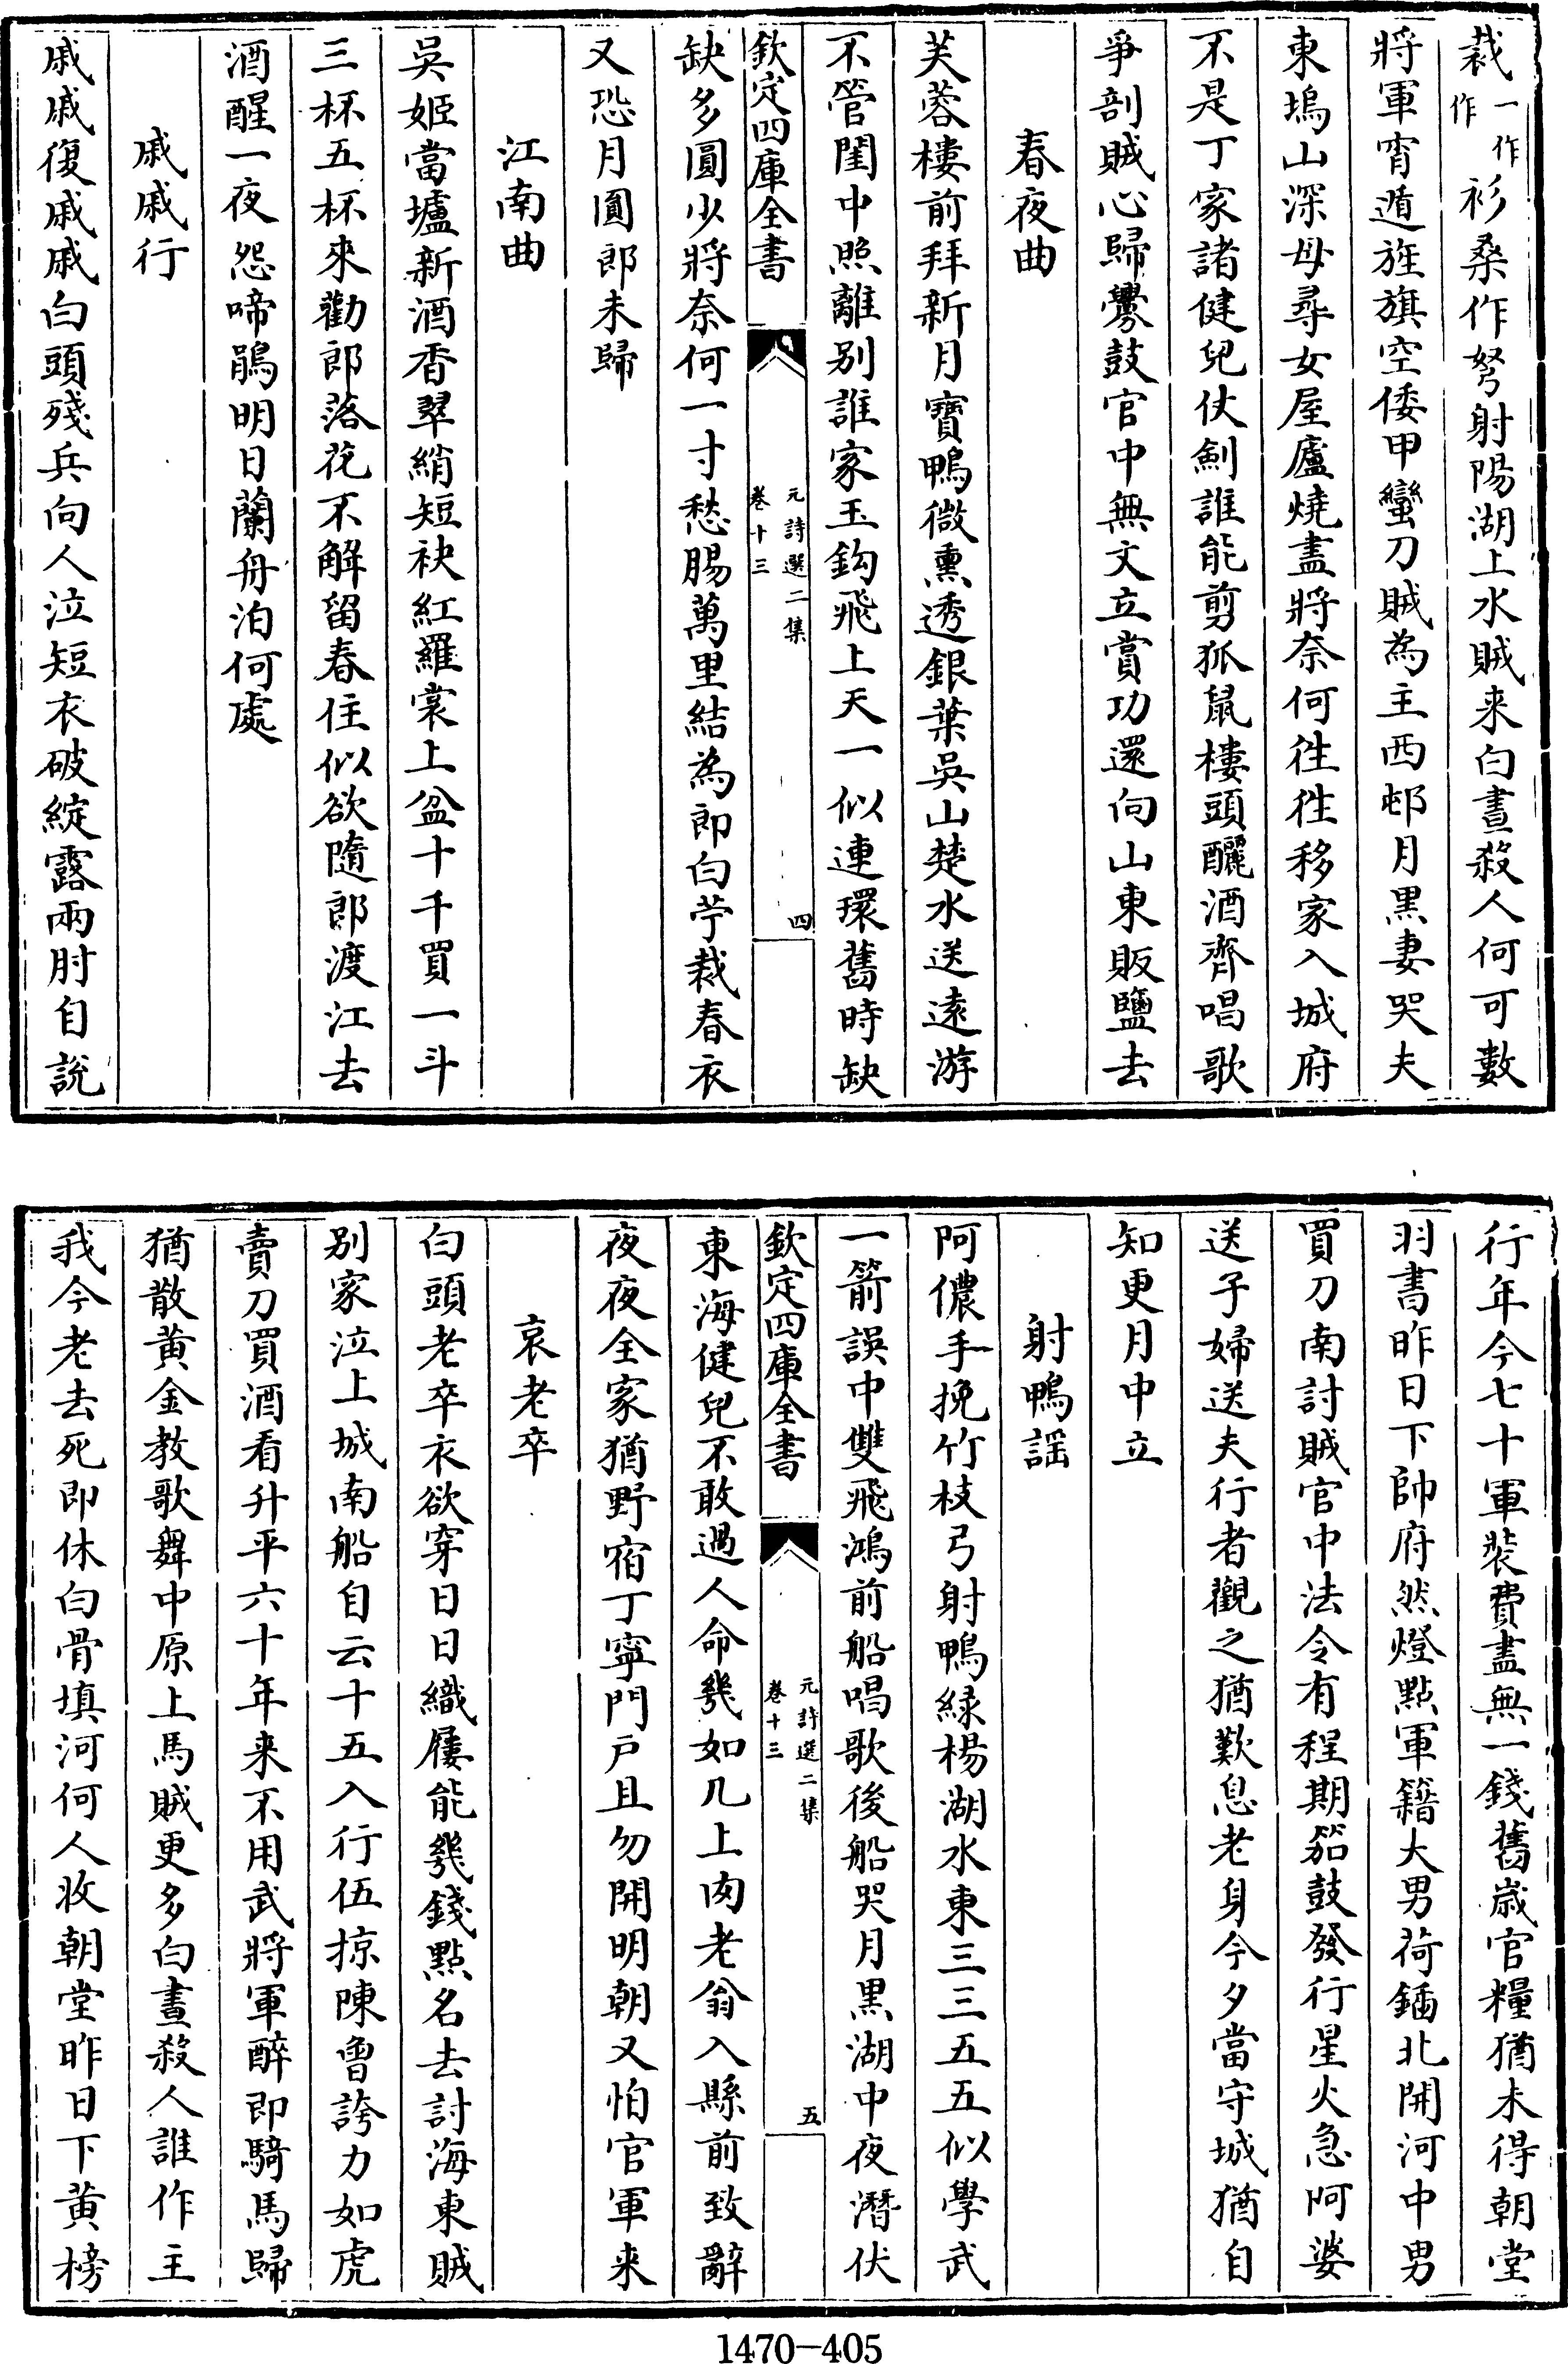 裁一作作衫桑作弩射陽湖上水賊来白晝殺人何可數
將軍宵遁旌旗空倭甲蠻刀賊為主西邨月黒妻哭夫
東塢山深母尋女屋廬燒盡將奈何徃徃移家入城府
不是丁家諸健兒仗劍誰能剪狐鼠樓頭釃酒齊唱歌
爭剖賊心歸釁鼓官中無文立賞功還向山東販鹽去
春夜曲
芙蓉樓前拜新月寶鴨微熏透銀葉吳山楚水送遠游
不管閨中照離别誰家玉鈎飛上天一似連環舊時缺
欽定四庫全書
元詩選二集
卷十三
四
缺多圓少將奈何一寸愁腸萬里結為郎白苧裁春衣
又恐月圓郎未歸
江南曲
吳姬當壚新酒香翠綃短袂紅羅裳上盆十千買一斗
三杯五杯來勸郎落花不解留春住似欲隨郎渡江去
酒醒一夜怨啼鵑明日蘭舟泊何處
戚戚行
戚戚復戚戚白頭殘兵向人泣短衣破綻露兩肘自說
行年今七十軍裝費盡無一錢舊歲官糧猶未得朝堂
羽書昨日下帥府然燈點軍籍大男荷鍤北開河中男
買刀南討賊官中法令有程期笳鼓發行星火急阿婆
送子婦送夫行者觀之猶歎息老身今夕當守城猶自
知更月中立
射鴨謡
阿儂手挽竹枝弓射鴨緑楊湖水東三三五五似學武
一箭誤中雙飛鴻前船唱歌後船哭月黒湖中夜潛伏
欽定四庫全書
元詩選二集
卷十三
五
東海健兒不敢過人命幾如几上肉老翁入縣前致辭
夜夜全家猶野宿丁寧門戸且勿開明朝又怕官軍来
哀老卒
白頭老卒衣欲穿日日織屨能幾錢點名去討海東賊
别家泣上城南船自云十五入行伍掠陳曾誇力如虎
賣刀買酒看升平六十年来不用武將軍醉即騎馬歸
猶散黄金教歌舞中原上馬賊更多白晝殺人誰作主
我今老去死即休白骨填河何人收朝堂昨日下黄榜
1470-405